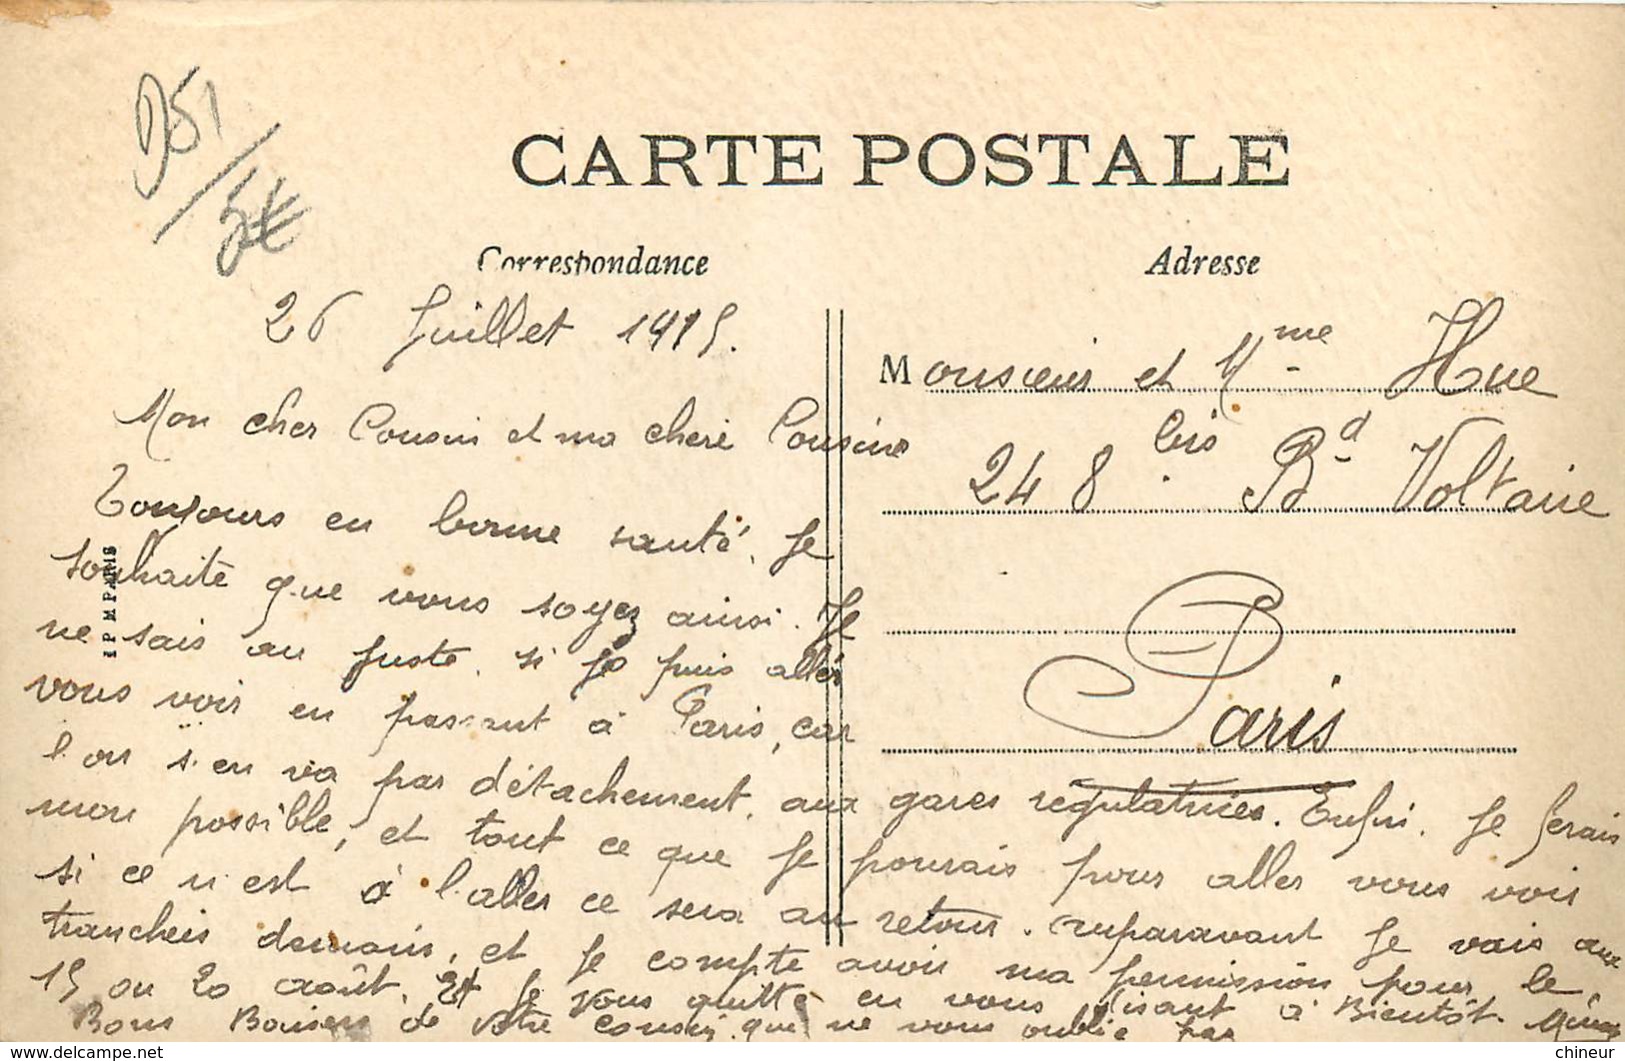 D51
5€
CARTE POSTALE
Correspondance
Adresse
26 Juillet 1915.
Mon cher Cousin et ma cheri Cousine
Toujours en bonne santé. Je
souhaite que vous soyez ainsi. Je
ne sais au juste si je puis aller
vous voir en passant à Paris, car
l'on s'en va par détachement, aux gares regulatrices. Enfin. Je ferais
mon possible, et tout ce que je pourais pour aller vous voir
si ce n'est à l'aller ce sera au retour. Auparavant je vais aux
trancheis demain, et je compte avoir ma permission pour le
15 ou 20 août. Et je vous quitte en vous disant à Bientôt.
Bons Baisers de votre cousin que ne vous oublie pas
Monsieur et Mme Hue
248 bis Bd Voltaire
Paris
I P M PARIS
delcampe.net
chineur